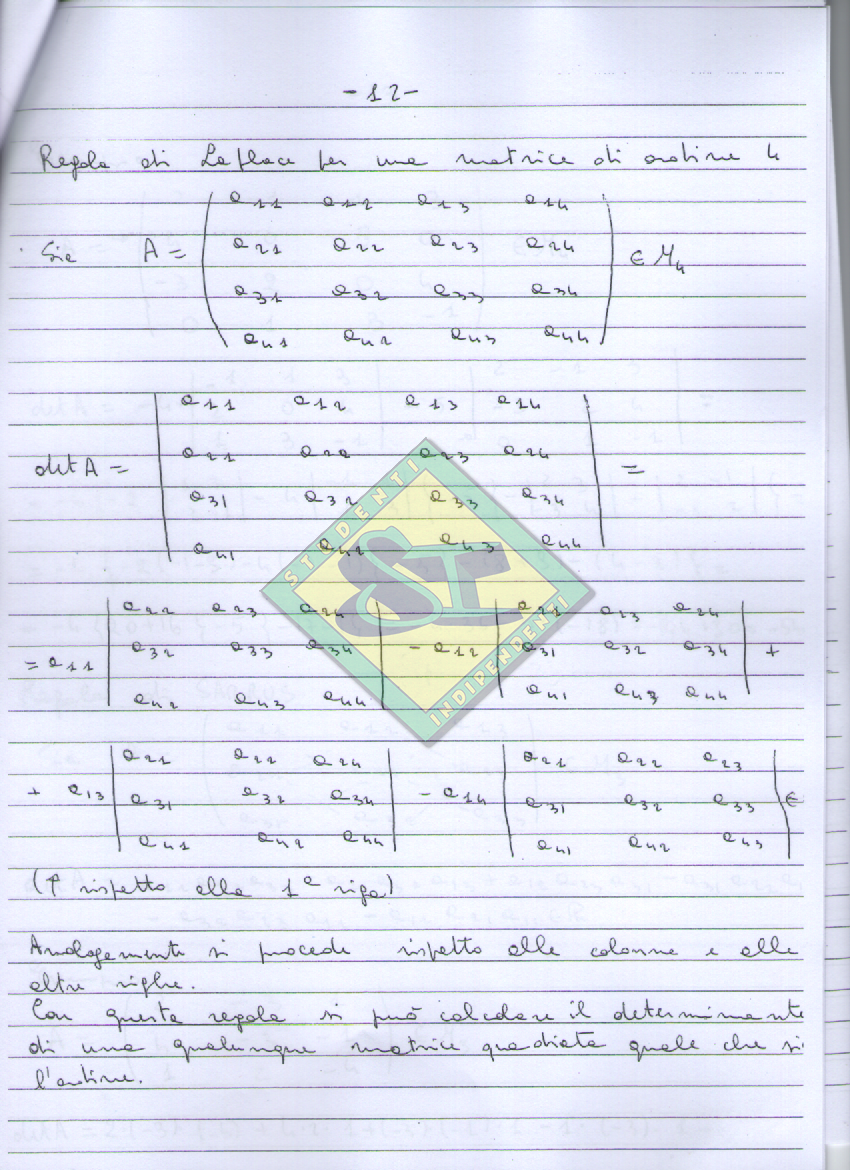 -12-
Regola di Laplace per una matrice di ordine 4
Sia A = ( a11 a12 a13 a14
a21 a22 a23 a24
a31 a32 a33 a34
a41 a42 a43 a44 ) ∈ M4
det A = | a11 a12 a13 a14
a21 a22 a23 a24
a31 a32 a33 a34
a41 a42 a43 a44 | =
= a11 | a22 a23 a24
a32 a33 a34
a42 a43 a44 | - a12 | a21 a23 a24
a31 a32 a34
a41 a43 a44 | +
+ a13 | a21 a22 a24
a31 a32 a34
a41 a42 a44 | - a14 | a21 a22 a23
a31 a32 a33
a41 a42 a43 | ∈
(↑ rispetto alla 1ª riga)
Analogamente si procede rispetto alle colonne e alle
altre righe.
Con questa regola si può calcolare il determinante
di una qualunque matrice quadrata quale che si
l'ordine.
STUDENTI
SI
INDIPENDENTI